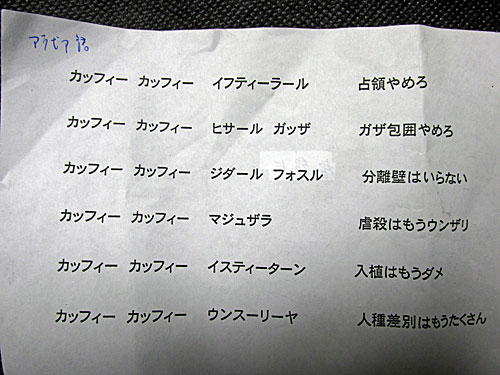 アラビア語
カッフィー カッフィー イフティーラール 占領やめろ
カッフィー カッフィー ヒサール ガッザ ガザ包囲やめろ
カッフィー カッフィー ジダール フォスル 分離壁はいらない
カッフィー カッフィー マジュザラ 虐殺はもうウンザリ
カッフィー カッフィー イスティーターン 入植はもうダメ
カッフィー カッフィー ウンスーリーヤ 人種差別はもうたくさん